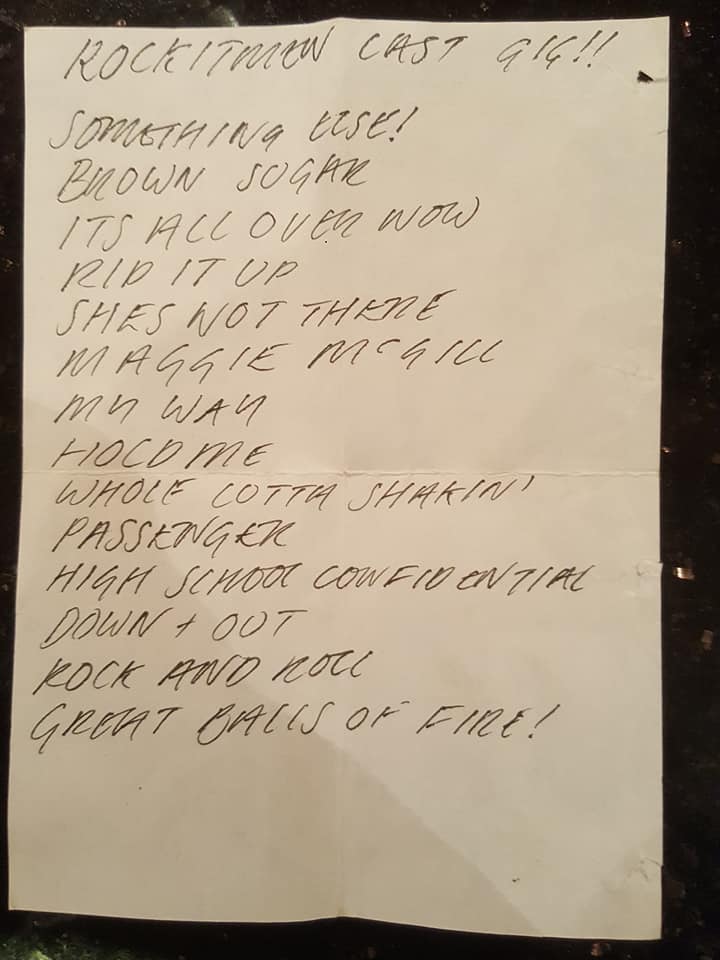 ROCKITMEN CAST GIG!!
SOMETHING ELSE!
BROWN SUGAR
ITS ALL OVER NOW
RIP IT UP
SHES NOT THERE
MAGGIE McGILL
MY WAY
HOLD ME
WHOLE LOTTA SHAKIN'
PASSENGER
HIGH SCHOOL CONFIDENTIAL
DOWN + OUT
ROCK AND ROLL
GREAT BALLS OF FIRE!